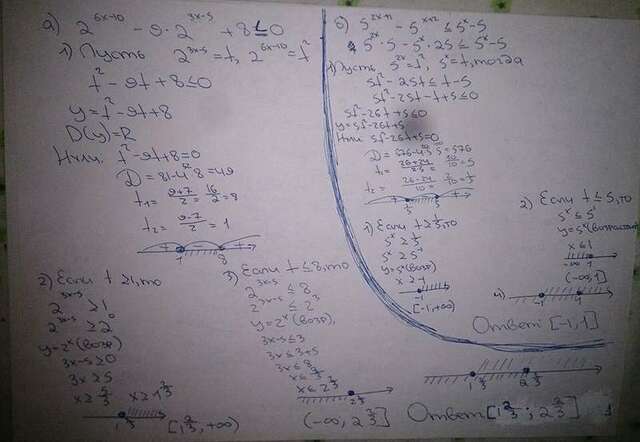 а) 2^(6x-10) - 9·2^(3x-5) + 8 ≤ 0
1) Пусть 2^(3x-5) = t, 2^(6x-10) = t²
t² - 9t + 8 ≤ 0
y = t² - 9t + 8
D(y) = R
Нули: t² - 9t + 8 = 0
D = 81 - 4·8 = 49
t₁ = (9+7)/2 = 16/2 = 8
t₂ = (9-7)/2 = 1
+ - +
1 8
2) Если t ≥ 1, то
2^(3x-5) ≥ 1
2^(3x-5) ≥ 2⁰
y = 2^x (возр)
3x-5 ≥ 0
3x ≥ 5
x ≥ 5/3 x ≥ 1 2/3
1 2/3 [1 2/3, +∞)
3) Если t ≤ 8, то
2^(3x-5) ≤ 8
2^(3x-5) ≤ 2³
y = 2^x (возр),
3x-5 ≤ 3
3x ≤ 3+5
3x ≤ 8
x ≤ 2 2/3
2 2/3
(-∞, 2 2/3]
б) 5^(2x+1) - 5^(x+2) ≤ 5^x - 5
5^(2x)·5 - 5^x·25 ≤ 5^x - 5
1) Пусть 5^(2x) = t², 5^x = t, тогда
5t² - 25t ≤ t - 5
5t² - 25t - t + 5 ≤ 0
5t² - 26t + 5 ≤ 0
y = 5t² - 26t + 5
Нули 5t² - 26t + 5 = 0
t₁ = (26+24)/
t₂ = (26-24)/10 = 2/10 = 1/5
+ - +
1) Если t ≥ 1/5, то
5^x ≥ 1/5
5^x ≥ 5^(-1)
y = 5^x (возр)
x ≥ -1
-1
[-1, +∞)
2) Если t ≤ 5, то
5^x ≤ 5
y = 5^x (возрастает)
x ≤ 1
(-∞, 1]
4)
-1 1
Ответ [-1, 1]
1 2/3 2 2/3
Ответ [1 2/3; 2 2/3]